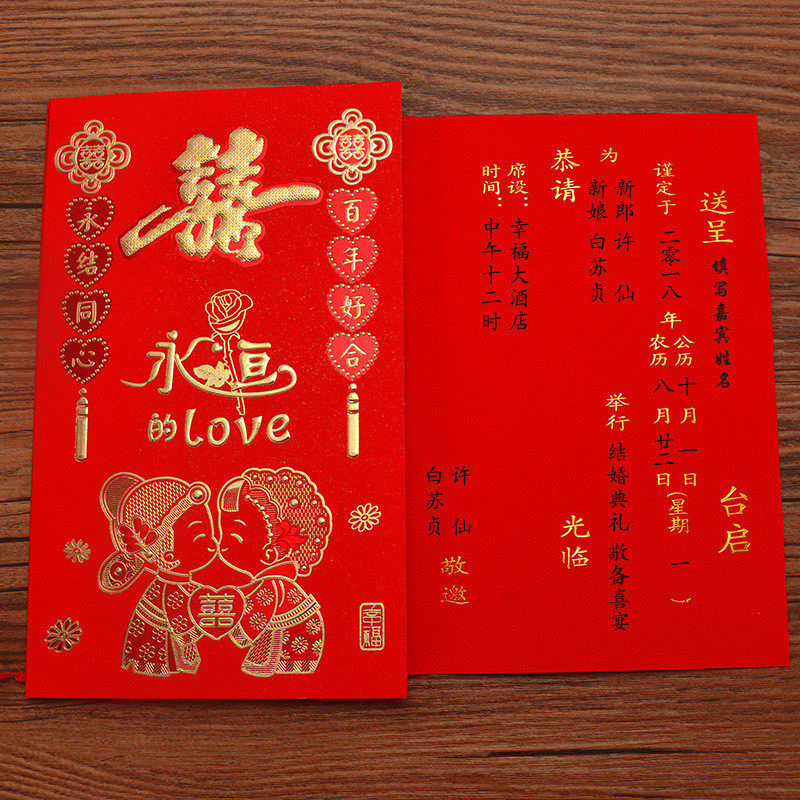 囍
囍
囍
永结同心
百年好合
永恒
的love
囍
幸福
送呈
填写嘉宾姓名
台启
谨定于 二零一八 年 公历 十 月 一 日 (星期 一 )
农历 八 月 廿二 日
为
新郎 许 仙
新娘 白苏贞
举行 结婚典礼 敬备喜宴
恭请
光临
席设：幸福大酒店
时间：中午十二时
许 仙
白苏贞
敬邀